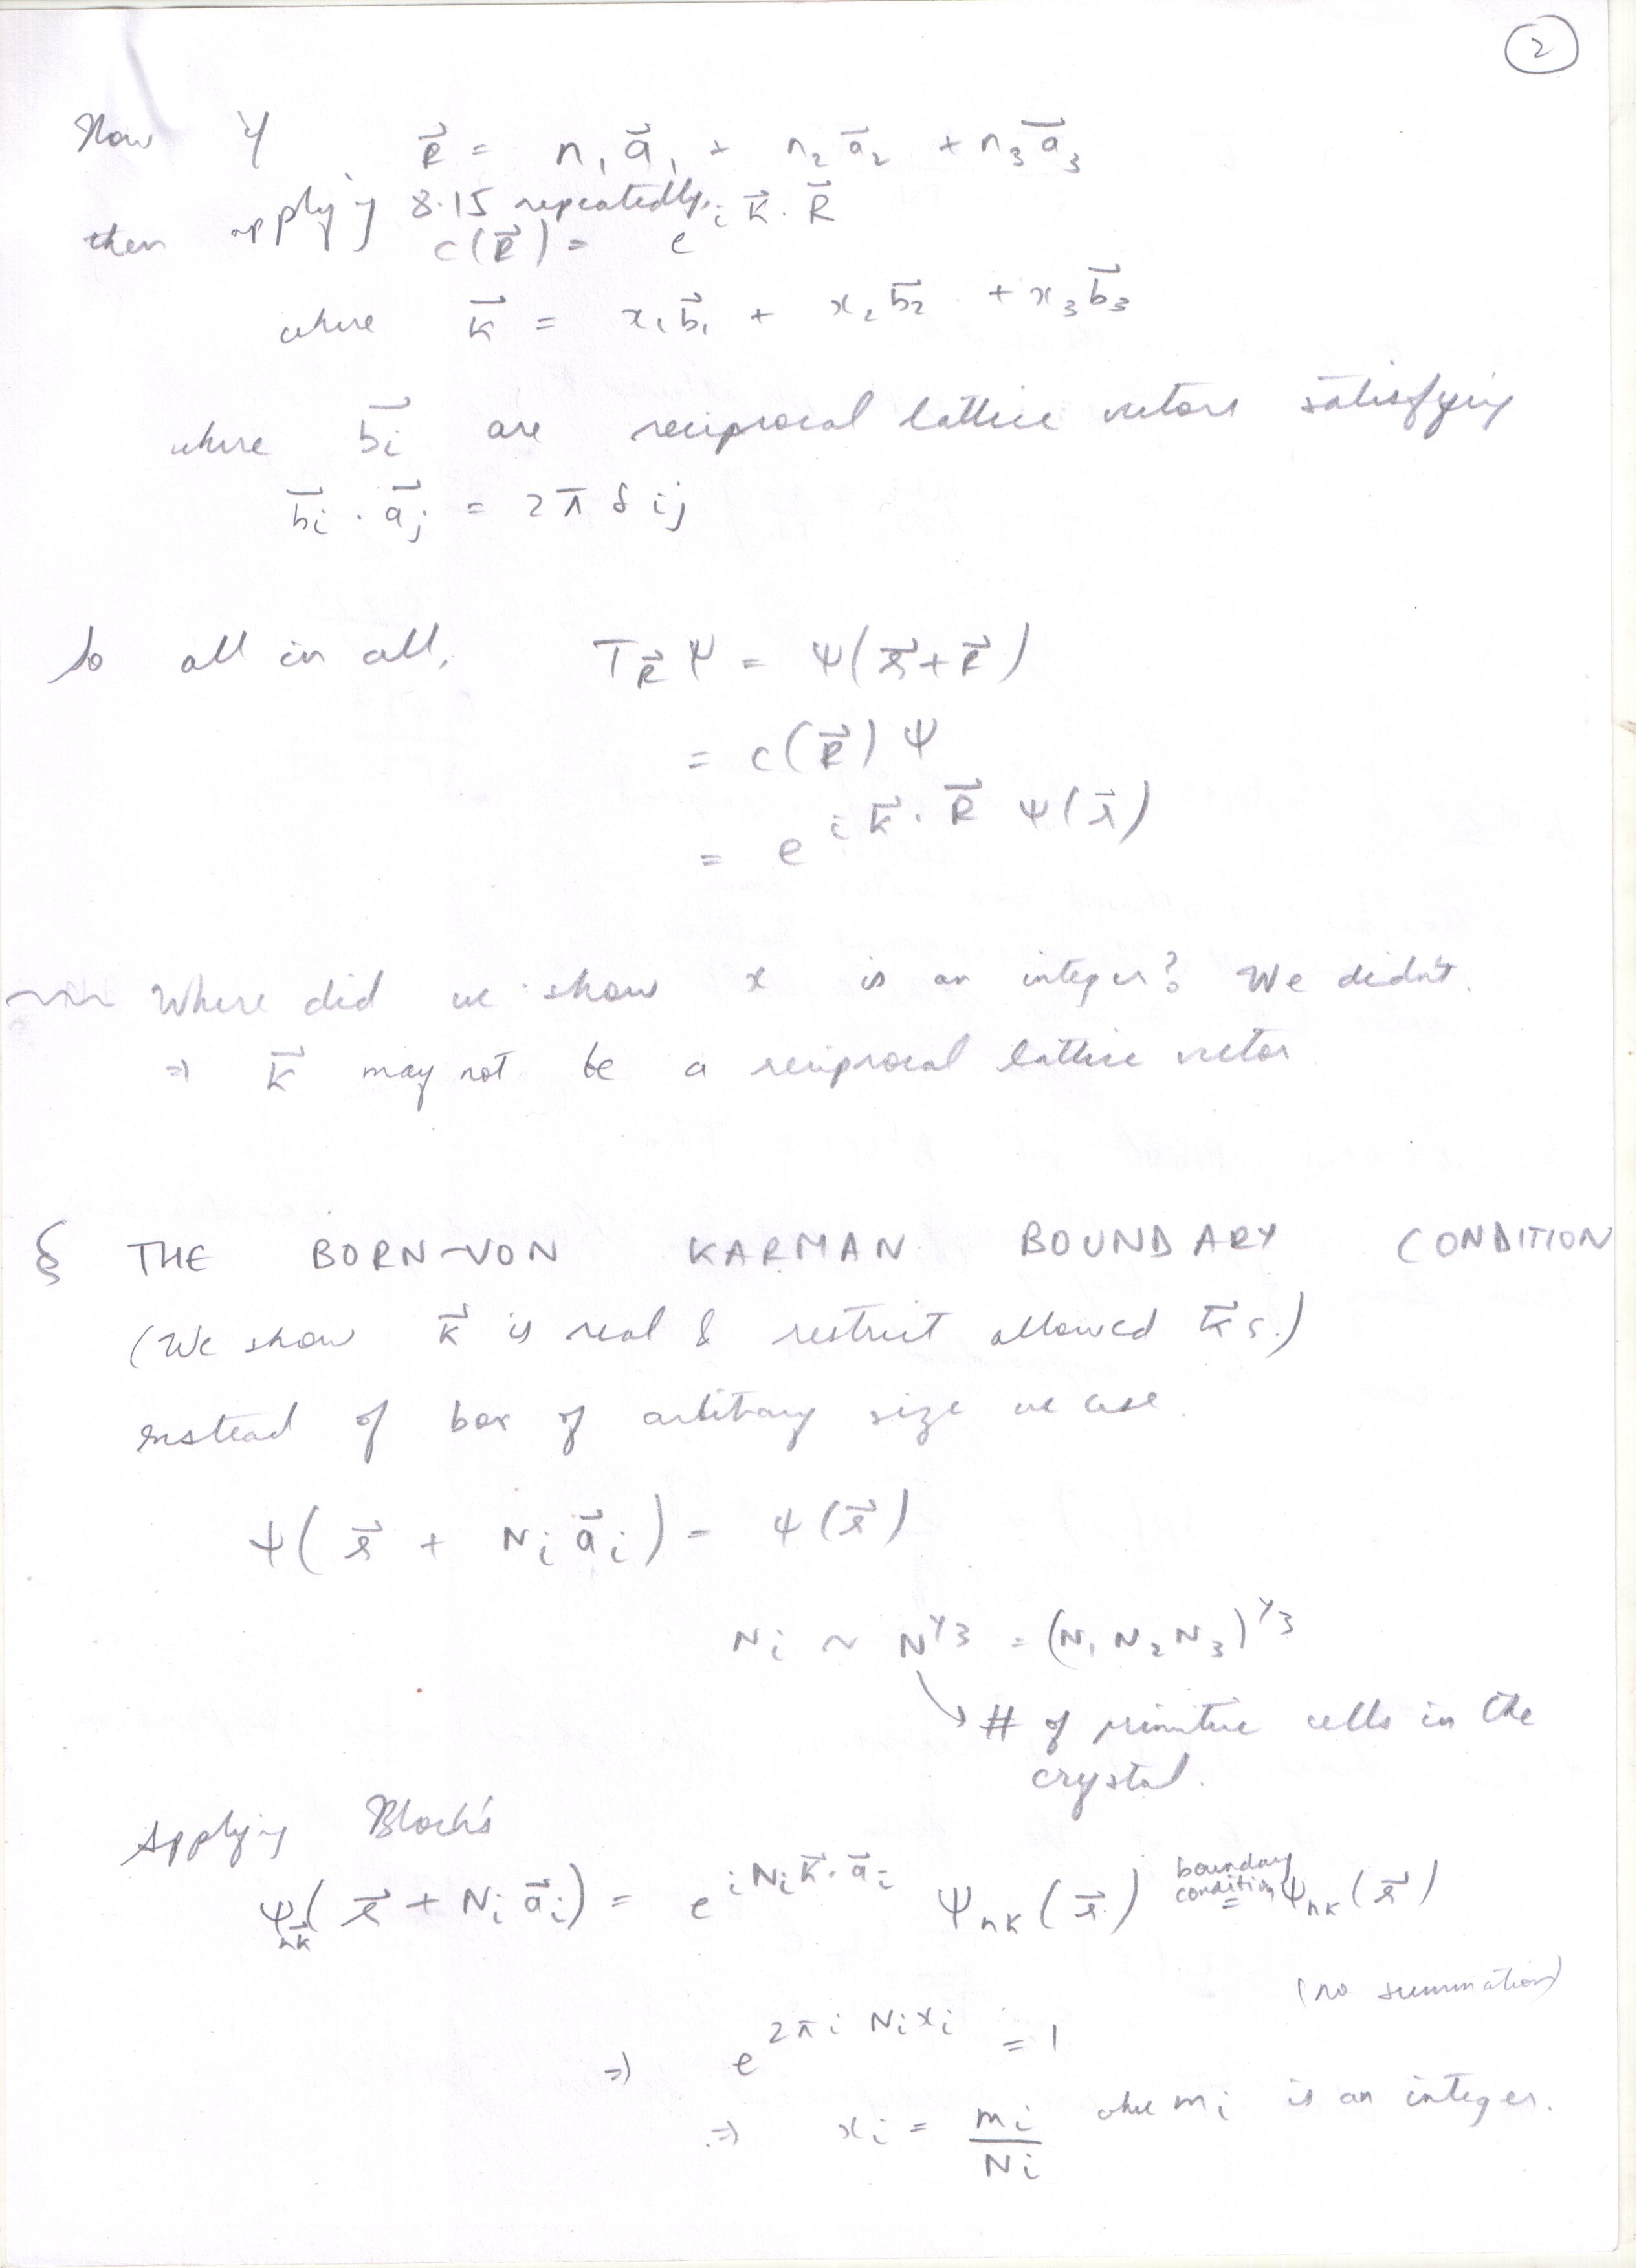 2
Now if R⃗ = n₁a⃗₁ + n₂a⃗₂ + n₃a⃗₃
then applying 8.15 repeatedly,
c(R⃗) = e^{i k⃗·R⃗}
where k⃗ = x₁b⃗₁ + x₂b⃗₂ + x₃b⃗₃
where b⃗ᵢ are reciprocal lattice vectors satisfying
b⃗ᵢ · a⃗ⱼ = 2π δij
So all in all, T_R⃗ ψ = ψ(r⃗+R⃗)
= c(R⃗) ψ
= e^{i k⃗·R⃗} ψ(r⃗)
Where did we show x is an integer? We didn't.
⇒ k⃗ may not be a reciprocal lattice vector
§ THE BORN-VON KARMAN BOUNDARY CONDITION
(We show k⃗ is real & restrict allowed k⃗s.)
Instead of box of arbitrary size we use
ψ(r⃗ + Nᵢa⃗ᵢ) = ψ(r⃗)
Nᵢ ~ N^{1/3} = (N₁N₂N₃)^{1/3}
↘ # of primitive cells in the
crystal.
Applying Bloch's
ψ_{nk⃗}(r⃗ + Nᵢa⃗ᵢ) = e^{i Nᵢ k⃗·a⃗ᵢ} ψ_{nk}(r⃗) boundary condition = ψ_{nk}(r⃗)
(no summation)
⇒ e^{2πi Nᵢxᵢ} = 1
⇒ xᵢ = mᵢ/Nᵢ where mᵢ is an integer.